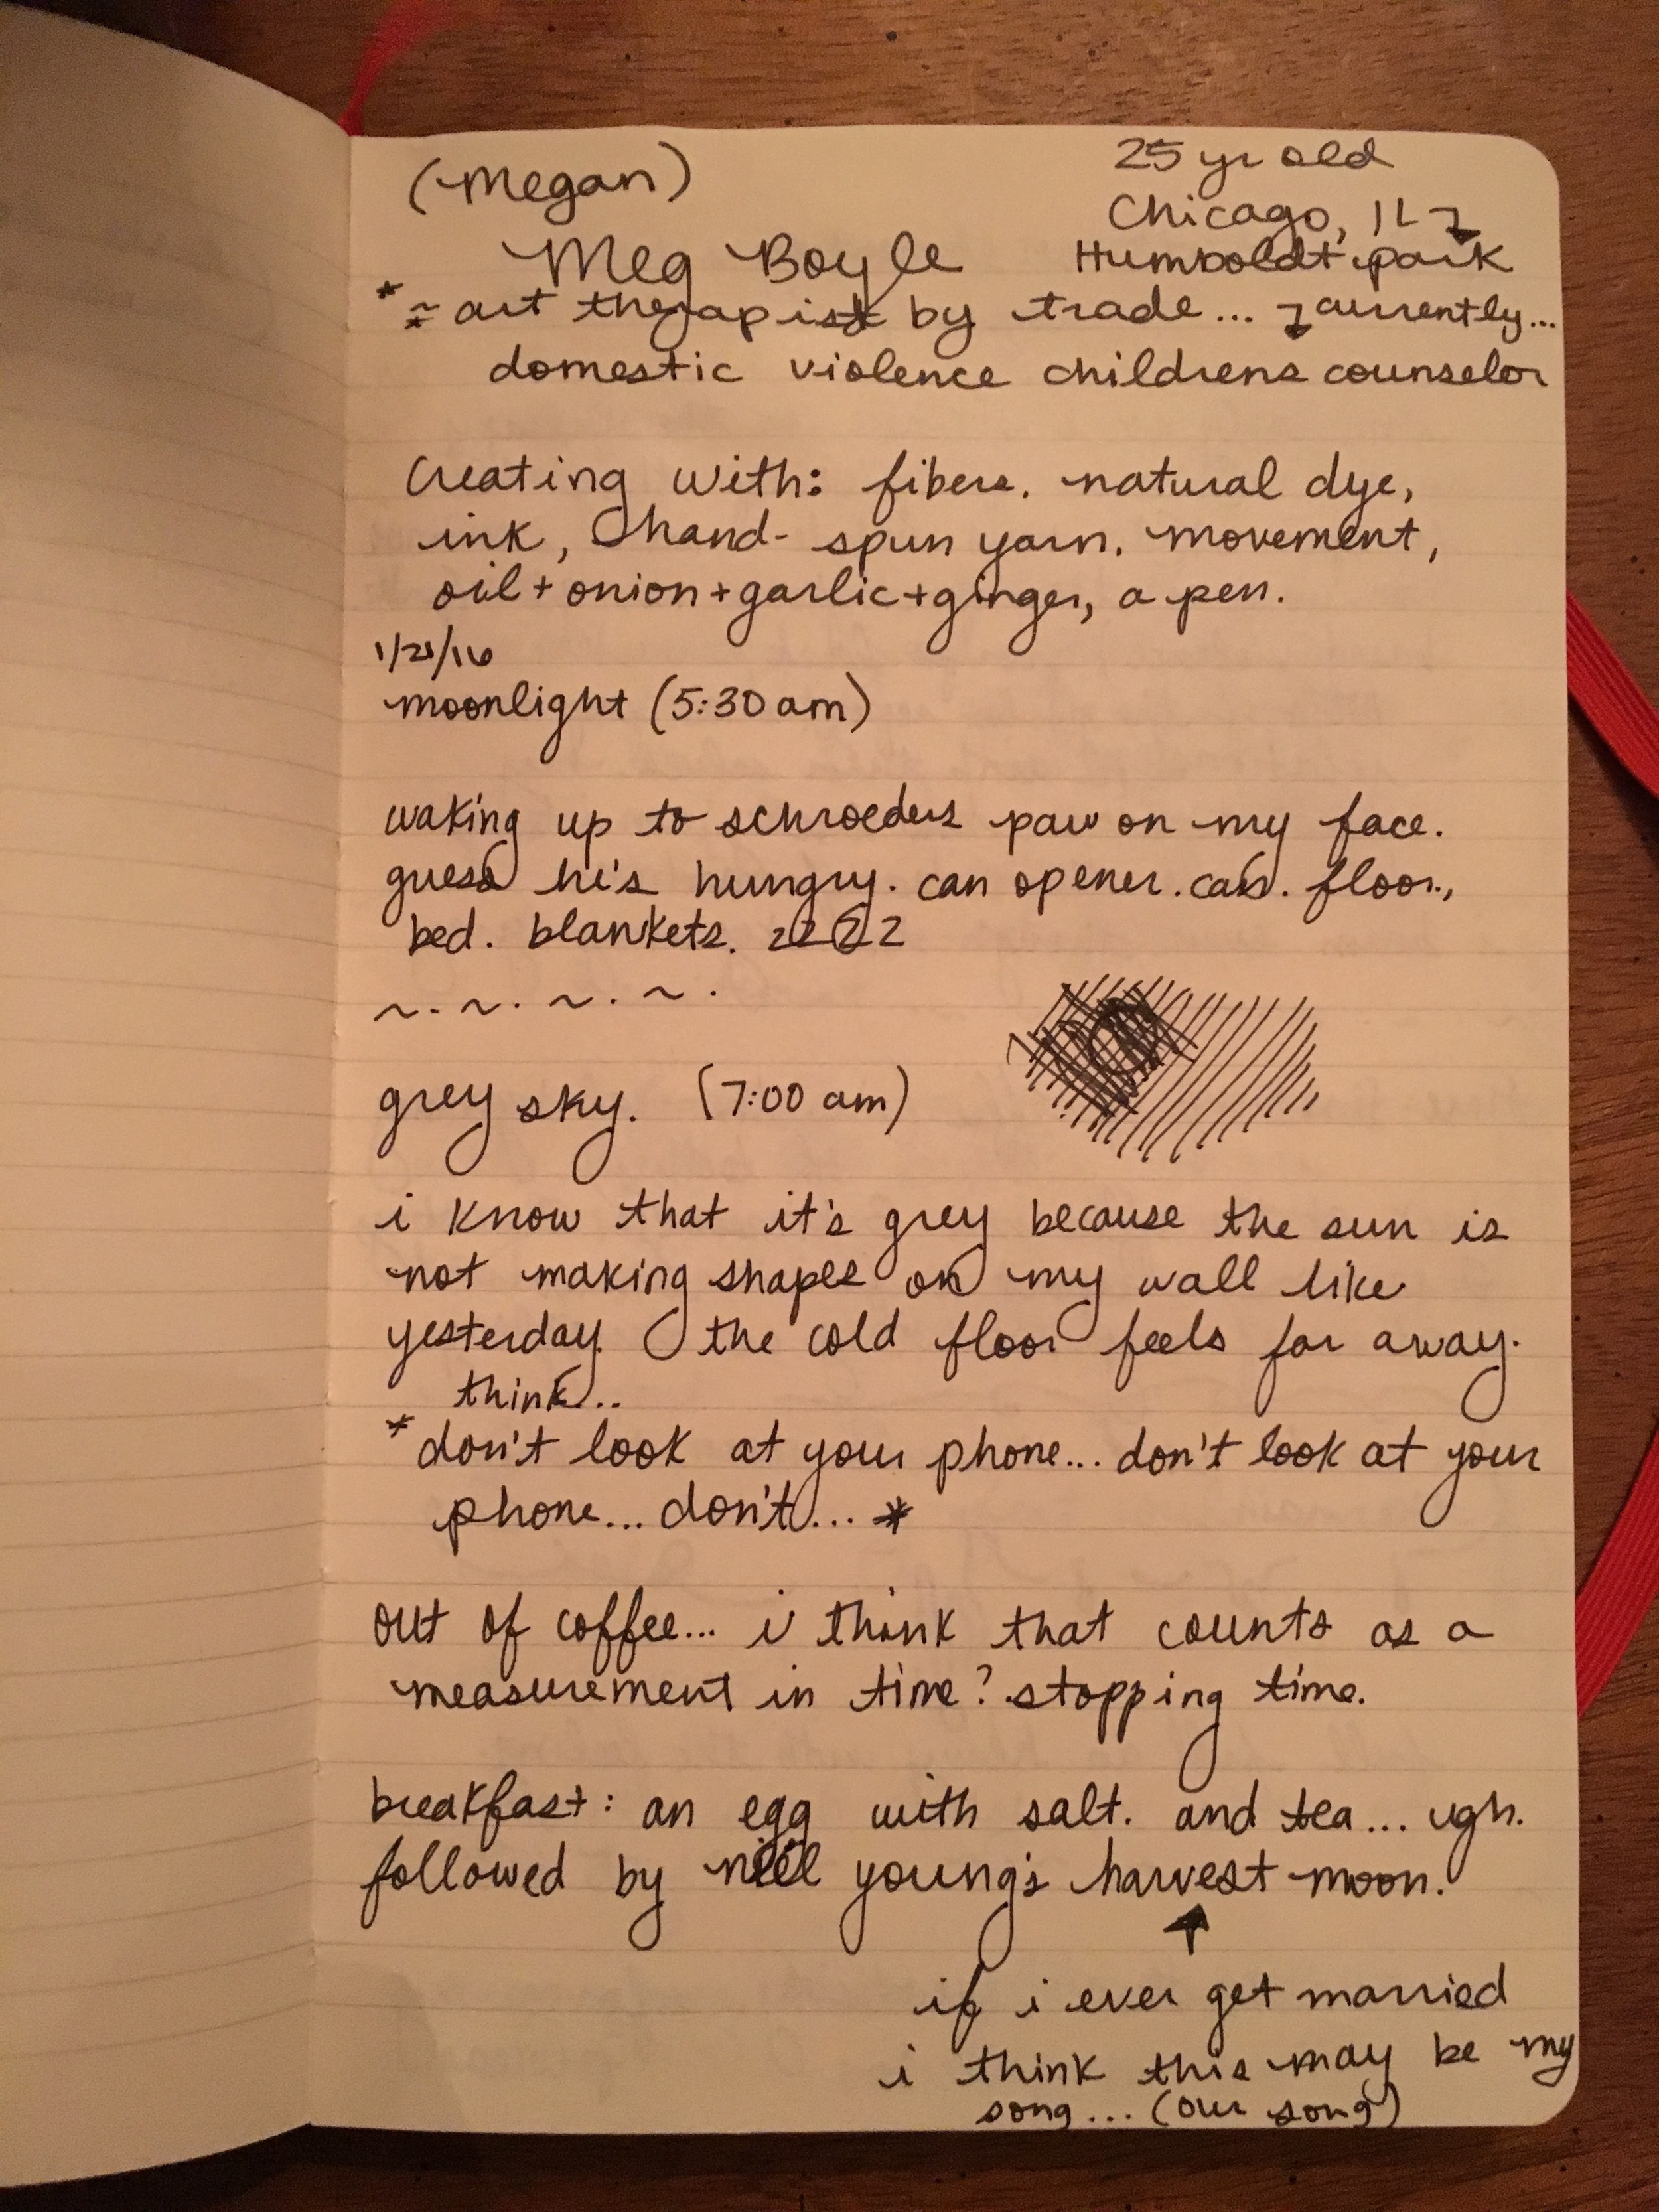 (Megan)
25 yr old
Chicago, IL
Meg Boyle
Humboldt park
* ~ art therapist by trade... currently...
domestic violence childrens counselor
Creating with: fibers. natural dye,
ink, hand-spun yarn. movement,
oil + onion + garlic + ginger, a pen.
1/21/16
moonlight (5:30 am)
waking up to schroeders paw on my face.
guess he's hungry. can opener. can. floor.,
bed. blankets. zzzz
~.~.~.~.
grey sky. (7:00 am)
i know that it's grey because the sun is
not making shapes on my wall like
yesterday. the cold floor feels far away.
think...
* don't look at your phone... don't look at your
phone... don't... *
out of coffee... i think that counts as a
measurement in time? stopping time.
breakfast: an egg with salt. and tea... ugh.
followed by neil young's harvest moon.
if i ever get married
i think this may be my
song... (our song)